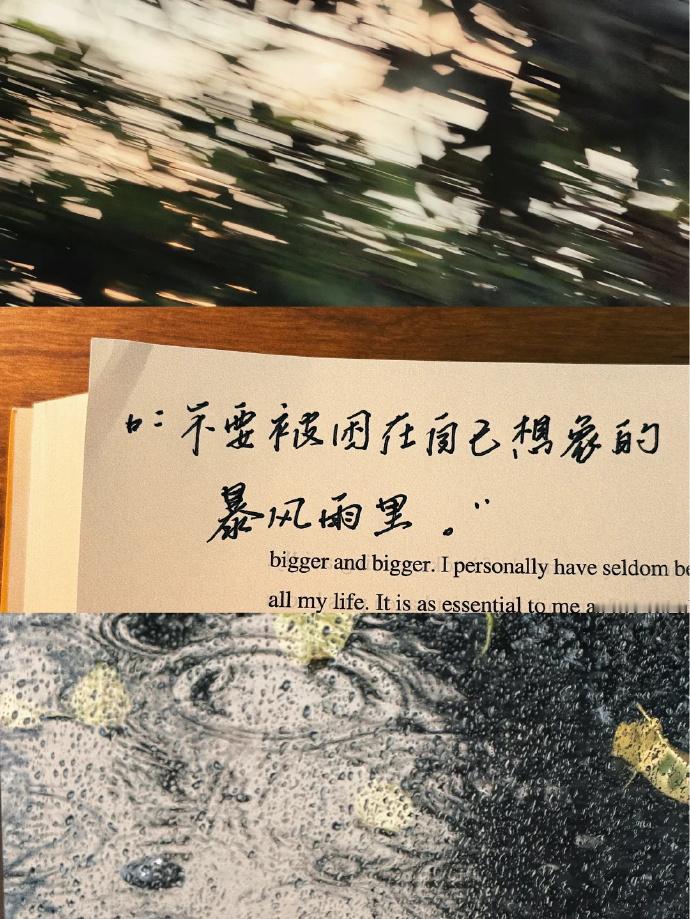 “：不要被困在自己想象的
暴风雨里。”
bigger and bigger. I personally have seldom be
all my life. It is as essential to me a